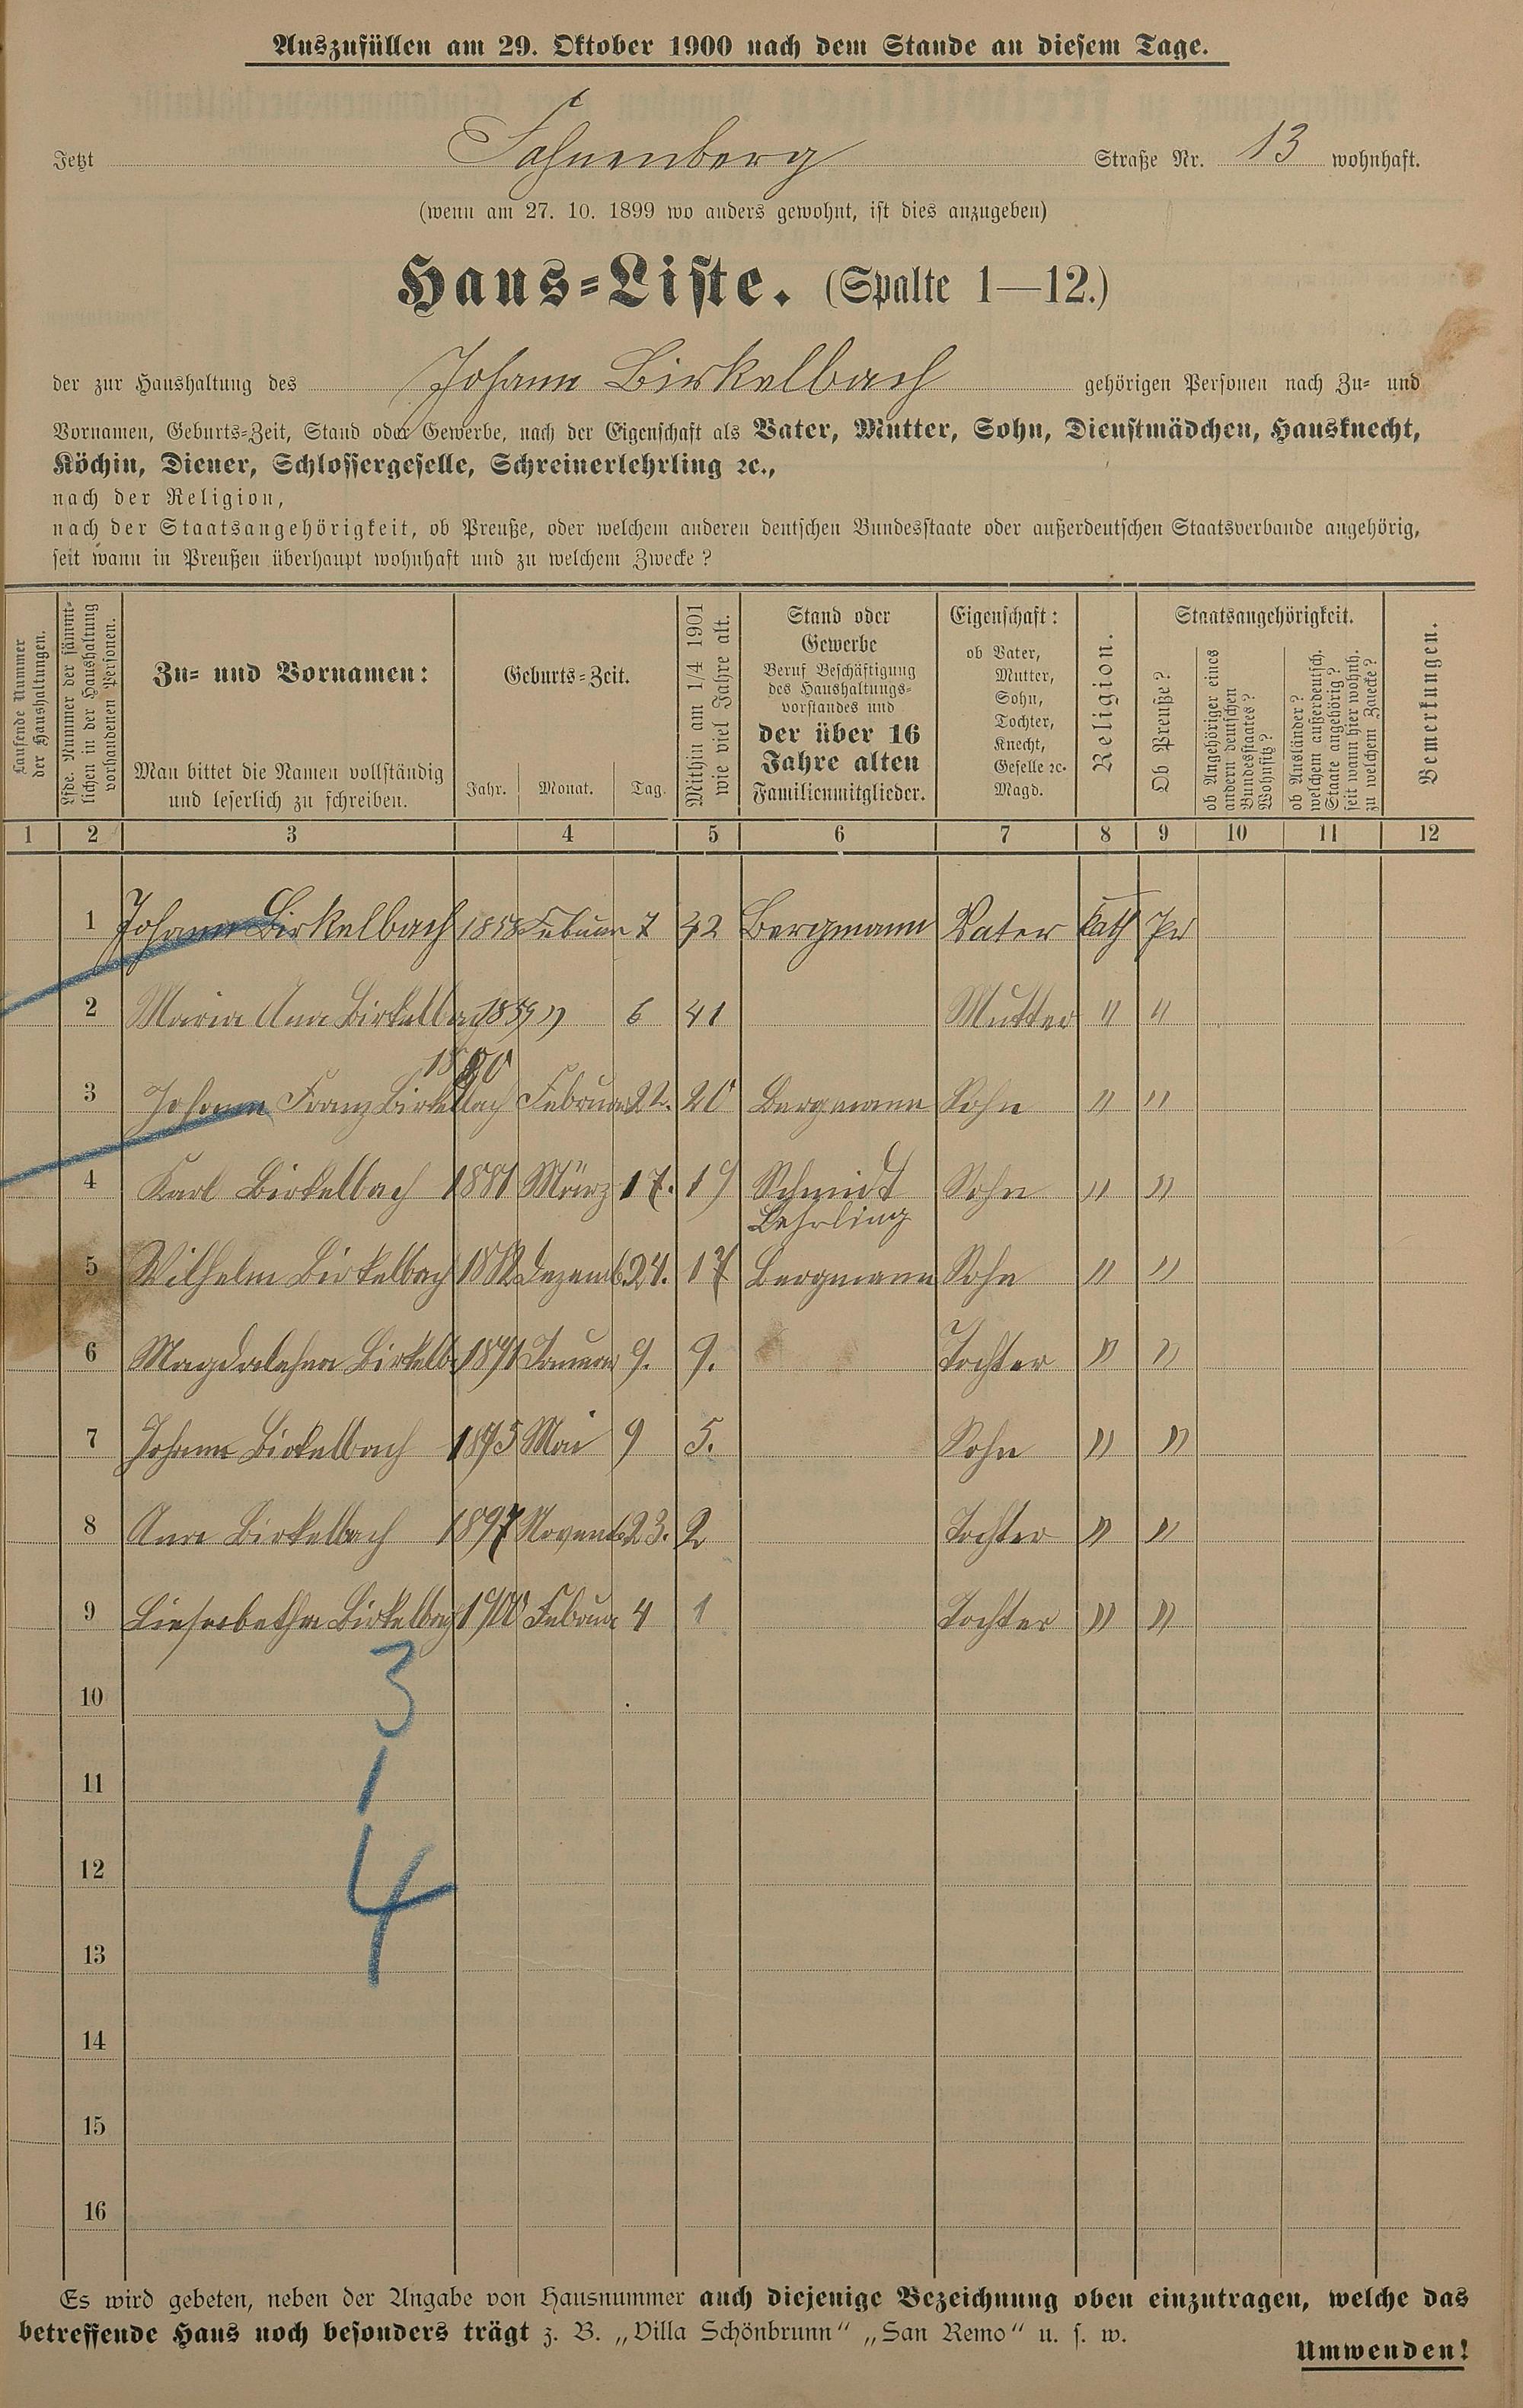 Auszufüllen am 29. Oktober 1900 nach dem Stande an diesem Tage.
Jetzt Fohnenberg Straße Nr. 13 wohnhaft.
(wenn am 27. 10. 1899 wo anders gewohnt, ist dies anzugeben)
Haus-Liste. (Spalte 1—12.)
der zur Haushaltung des Johann Birkelbach gehörigen Personen nach Zu- und
Vornamen, Geburts-Zeit, Stand oder Gewerbe, nach der Eigenschaft als Vater, Mutter, Sohn, Dienstmädchen, Hausknecht,
Köchin, Diener, Schlossergeselle, Schreinerlehrling ꝛc.,
nach der Religion,
nach der Staatsangehörigkeit, ob Preuße, oder welchem anderen deutschen Bundesstaate oder außerdeutschen Staatsverbande angehörig,
seit wann in Preußen überhaupt wohnhaft und zu welchem Zwecke?
Laufende Nummer
der Haushaltungen.
Lfde. Nummer der sämmt-
lichen in der Haushaltung
vorhandenen Personen.
Zu- und Vornamen:
Man bittet die Namen vollständig
und leserlich zu schreiben.
Geburts-Zeit.
Jahr. Monat. Tag.
Mithin am 1/4 1901
wie viel Jahre alt.
Stand oder
Gewerbe
Beruf Beschäftigung
des Haushaltungs-
vorstandes und
der über 16
Jahre alten
Familienmitglieder.
Eigenschaft:
ob Vater,
Mutter,
Sohn,
Tochter,
Knecht,
Geselle ꝛc.
Magd.
Religion.
Staatsangehörigkeit.
Ob Preuße?
ob Angehöriger eines
andern deutschen
Bundesstaates?
Wohnsitz?
ob Ausländer?
welchem außerdeutsch.
Staate angehörig?
seit wann hier wohnh.
zu welchem Zwecke?
Bemerkungen.
1 2 3 4 5 6 7 8 9 10 11 12
1 Johann Birkelbach 1858 Februar 7 42 Bergmann Vater Kath Pr
2 Maria Ann Birkelbach 1859 " 6 41 Mutter " "
1880
3 Johann Franz Birkelbach Februar 22. 20 Bergmann Sohn " "
4 Karl Birkelbach 1881 März 17. 19 Schmidt Sohn " "
Lehrling
5 Wilhelm Birkelbach 1882 Dezemb. 24. 17 Bergmann Sohn " "
6 Magdalehna Birkelb 1891 Januar 9. 9. Tochter " "
7 Johann Birkelbach 1895 Mai 9 5. Sohn " "
8 Ann Birkelbach 1897 Novemb 23. 2 Tochter " "
9 Lieserbetha Birkelbach 1900 Februar 4 1 Tochter " "
3
10
1
11
4
12
13
14
15
16
Es wird gebeten, neben der Angabe von Hausnummer auch diejenige Bezeichnung oben einzutragen, welche das
betreffende Haus noch besonders trägt z. B. „Villa Schönbrunn“ „San Remo“ u. s. w.
Umwenden!